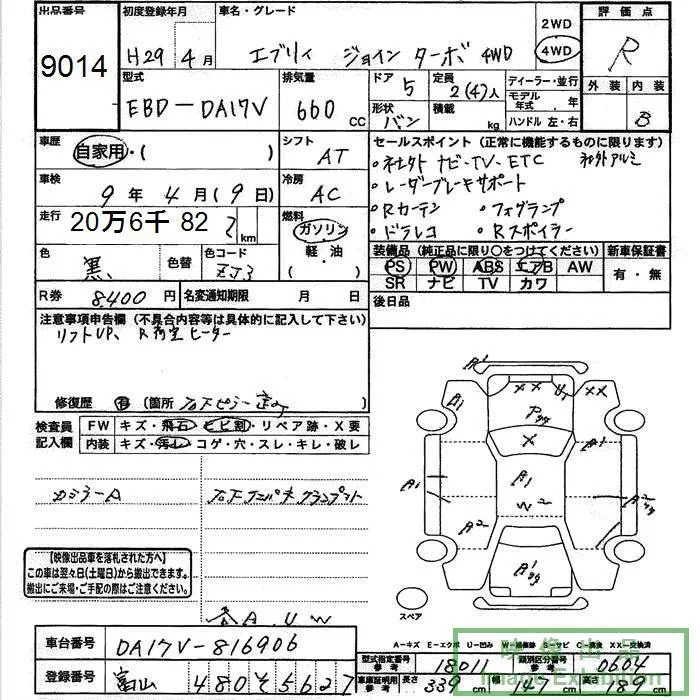 出品番号
初度登録年月
車名・グレード
評価点
9014
H29年4月
エブリィ ジョイン ターボ 4WD
2WD
4WD
R
外装 内装
B
型式
排気量
ドア
定員
ディーラー・並行
EBD-DA17V
660 CC
5
2(4)人
モデル年式 年
形状
積載
バン
kg
ハンドル 左・右
車歴
シフト
セールスポイント(正常に機能するものに限ります)
自家用・( )
AT
・社外ナビ・TV、ETC 社外アルミ
車検
冷房
・レーダーブレーキサポート
9年4月(9日)
AC
・Rカーテン ・フォグランプ
走行
燃料
・ドラレコ ・Rスポイラー
20万6千 82
km
ガソリン
軽・油
( )
装備品(純正品に限り○をつけてください)
新車保証書
色
色替
色コード
黒
ZJ3
PS PW ABS エアB AW
有・無
SR ナビ TV カワ
R券 8,400円
名変通知期限 月 日
後日品
注意事項申告欄(不具合内容等は具体的に記入して下さい)
リフトUP、R荷室ヒーター
修復歴 有 (箇所
検査員記入欄
FW キズ・飛石・ヒビ割・リペア跡・X要
内装 キズ・汚レ・コゲ・穴・スレ・キレ・破レ
【映像出品車を落札された方へ】
この車は翌々日(土曜日)から搬出できます。
搬出にご来場・ご手配の際はご注意ください。
A.U.W
A1
XX
U1
XX
A1
P
X
A1
A1
A1
A2
W2
A2
A1
スペア
A-キズ E-エクボ U-凹み
XX-交換済
車台番号
DA17V-816906
型式指定番号
18011
類別区分番号
0604
登録番号
富山 480 そ 5627
車庫証明用参考
長さ 339 cm
幅 147 cm
高さ 189 cm
映像出品
Image Exhibition